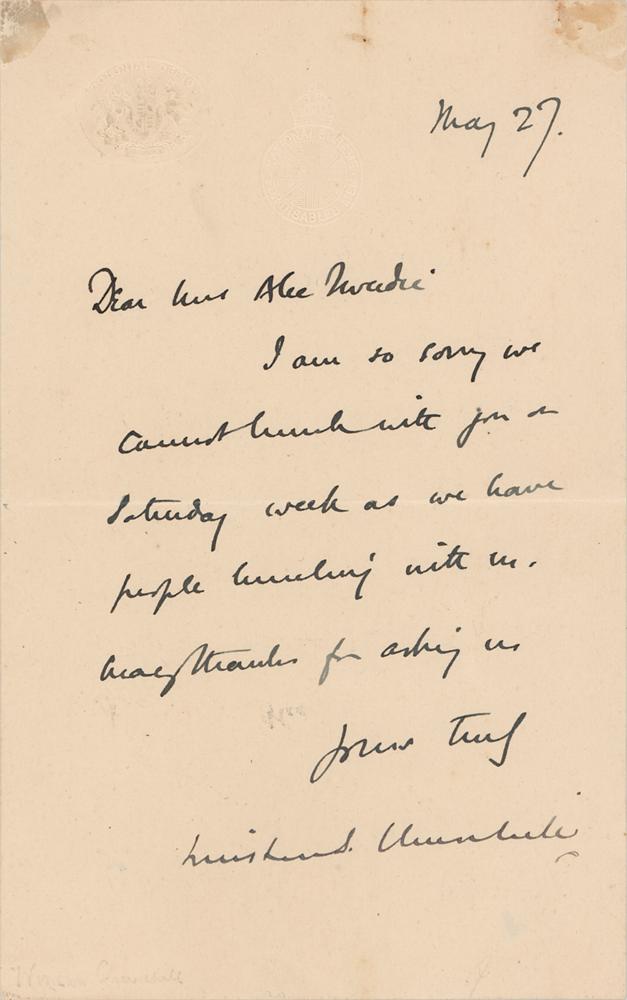 May 27.
Dear Mrs Alec Tweedie
I am so sorry we
cannot lunch with you on
Saturday week as we have
people lunching with us.
Many thanks for asking us
Yours truly
Winston S. Churchill